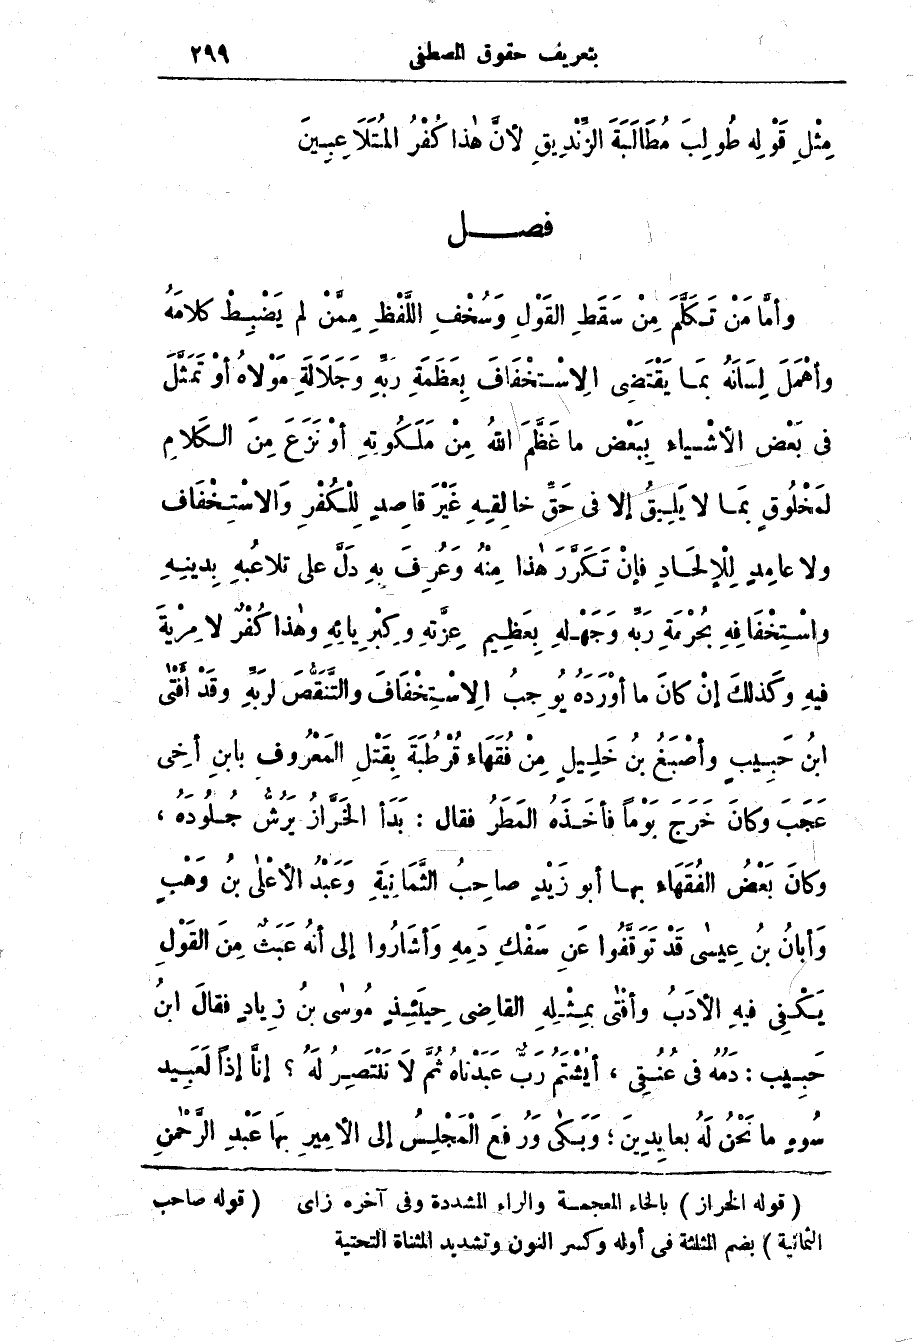 بتعريف حقوق المصطفى ٢٩٩
مِثْلِ قَوْلِهِ طُولِبَ مُطَالَبَةَ الزِّنْدِيقِ لأَنَّ هٰذا كُفْرُ المُتَلَاعِبِينَ
فصـــل
وأمَّا مَنْ تَكَلَّمَ مِنْ سَقَطِ القَوْلِ وَسُخْفِ اللَّفْظِ مِمَّنْ لم يَضْبِطْ كلامَهُ
وأهْمَلَ لِسَانَهُ بمَا يَقْتَضِى الِاسْتِخْفَافَ بِعَظَمَةِ رَبِّهِ وَجَلَالَةِ مَوْلاهُ أوْ تَمَثَّلَ
فى بَعْضِ الأشْياءِ بِبَعْضِ ما عَظَّمَ اللهُ مِنْ مَلَكُوتِهِ أوْ نَزَعَ مِنَ الكَلامِ
لمَخْلُوقٍ بمَا لا يَلِيقُ إلا فى حَقِّ خالِقِهِ غَيْرَ قاصِدٍ لِلْكُفْرِ وَالاسْتِخْفَافِ
ولا عامِدٍ لِلْإلحَادِ فإنْ تَكَرَّرَ هٰذا مِنْهُ وَعُرِفَ بِهِ دَلَّ على تلاعُبِهِ بِدِينِهِ
واسْتِخْفَافِهِ بحُرْمَةِ رَبِّهِ وَجَهْلِهِ بِعَظِيمِ عِزَّتِهِ وكِبْرِيائِهِ وهٰذا كُفْرٌ لا مِرْيَةَ
فيهِ وكَذلكَ إنْ كانَ ما أوْرَدَهُ يُوجِبُ الِاسْتِخْفَافَ والتَّنَقُّصَ لرَبِّهِ وقَدْ أفْتَى
ابنُ حَبِيبٍ وأصْبَغُ بنُ خَلِيلٍ مِنْ فُقَهَاءِ قُرْطُبَةَ بِقَتْلِ المَعْرُوفِ بابنِ أخِى
عَجَبَ وكانَ خَرَجَ يَوْماً فأخَذَهُ المَطَرُ فقال : بَدَأ الخَرَّازُ يَرُشُّ جُلُودَهُ ،
وكانَ بَعْضُ الفُقَهَاءِ بهَا أبو زَيْدٍ صاحِبُ الثَّمَانِيَةِ وَعَبْدُ الأعْلٰى بنُ وَهْبٍ
وَأبانُ بنُ عِيسٰى قَدْ تَوَقَّفُوا عَنِ سَفْكِ دَمِهِ وَأشَارُوا إلى أنهُ عَبَثٌ مِنَ القَوْلِ
يَكْفِى فيهِ الأدَبُ وأفْتَى بمِثْلِهِ القاضِى حِينَئِذٍ مُوسَى بنُ زِيادٍ فقالَ ابنُ
حَبِيب : دَمُهُ فى عُنُقِى ، أيُشْتَمُ رَبٌّ عَبَدْنَاهُ ثُمَّ لَا نَنْتَصِرُ لَهُ ؟ إنَّا إذاً لَعَبِيد
سُوءٍ ما نَحْنُ لَهُ بعابِدِينَ ؛ وَبَكٰى وَرُفِعَ الْمَجْلِسُ إلى الأمِيرِ بهَا عَبْدِ الرَّحْمٰنِ
( قوله الخراز ) بالخاء المعجمة والراء المشددة وفى آخره زاى ( قوله صاحب
الثمانية ) بضم المثلثة فى أوله وكسر النون وتشديد المثناة التحتية